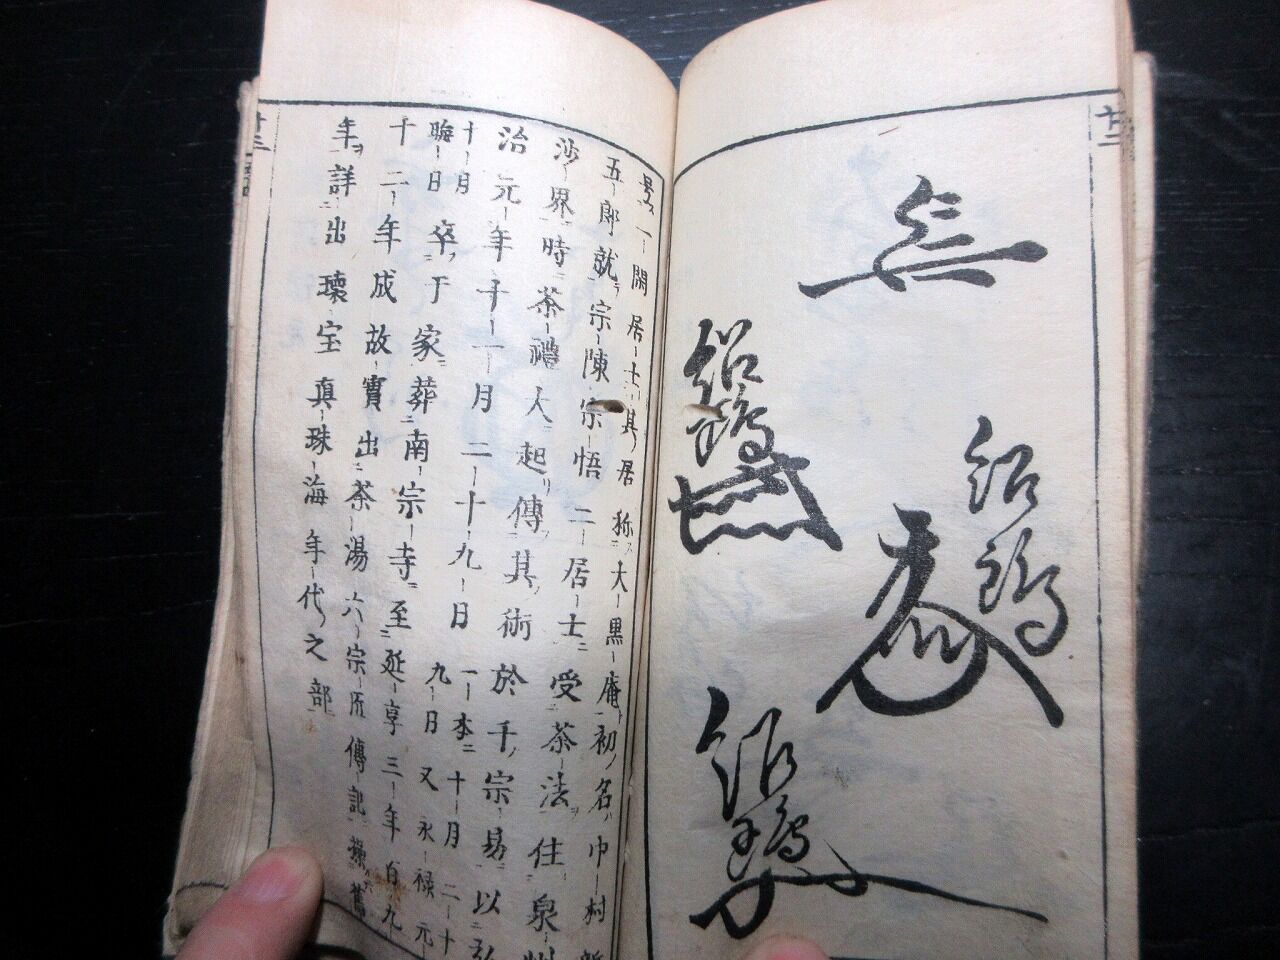 廿二
紹鴎
紹鴎
紹鴎
号一閑居士其居称大黒庵初名巾村新
五郎就宗陳宗悟二居士受茶法住泉州
沙界時茶禮大起傳其術於千宗易以弘
治元年千一月二十九日
一本二十月二十
九日又永禄元
十月
晦日
卒于家葬南宗寺至延享三年百九
十二年成故實出茶湯六宗匠傳記
年詳出瓌宝真珠海年代之部
廿三